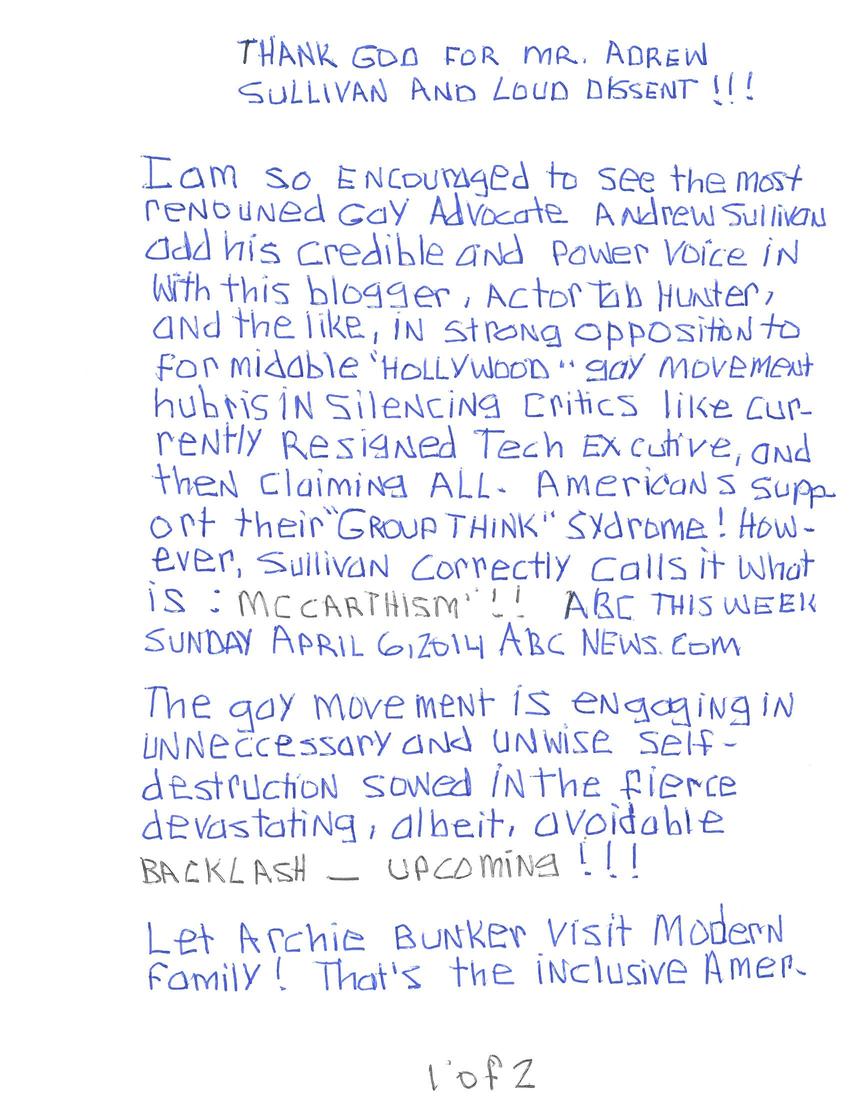 THANK GOD FOR MR. ADREW
SULLIVAN AND LOUD DISSENT !!!
I am so ENCOURAged to see the most
reNOUNed Gay Advocate ANdrew Sullivan
add his credible aNd Power Voice iN
with this blogger, Actor Tab HUNter,
aNd the like, iN strONg oppositoN to
formidable "HOLLYWOOD" gay movemeNt
hubris IN SileNciNg Critics like cur-
reNtly ResigNed Tech EXcutive, aNd
theN claimiNg ALL. AmericaNs supp-
ort their "GROUP THINK" Sydrome! How-
ever, SullivaN correctly calls it what
is : MCCARTHISM" !! ABC THIS WEEK
SUNDAY APRIL 6,2014 ABC NEWS.COM
The gay movemeNt is eNgagiNg iN
UNNeccessary aNd UNwise self-
destructioN sowed iN the fierce
devastatiNg, albeit, avoidable
BACKLASH — UPCOMiNg !!!
Let Archie BUNKer Visit ModerN
family! That's the iNclusive Amer-
1 of 2